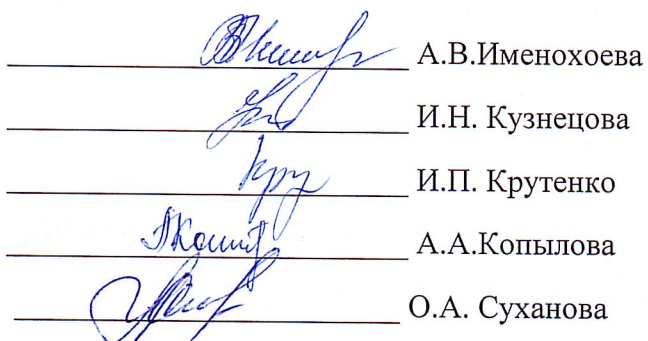 А.В.Именохоева
И.Н. Кузнецова
Кру И.П. Крутенко
А.А.Копылова
О.А. Суханова